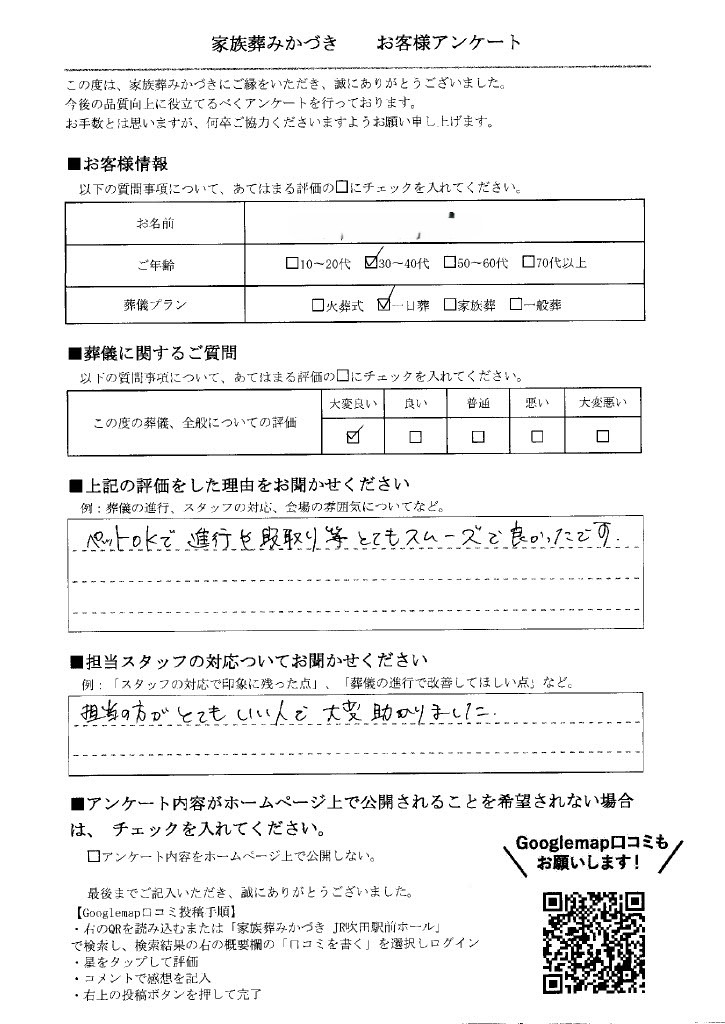 家族葬みかづき　　お客様アンケート
この度は、家族葬みかづきにご縁をいただき、誠にありがとうございました。
今後の品質向上に役立てるべくアンケートを行っております。
お手数とは思いますが、何卒ご協力くださいますようお願い申し上げます。
■お客様情報
以下の質問事項について、あてはまる評価の□にチェックを入れてください。
お名前
ご年齢 □10～20代 ☑30～40代 □50～60代 □70代以上
葬儀プラン □火葬式 ☑一日葬 □家族葬 □一般葬
■葬儀に関するご質問
以下の質問事項について、あてはまる評価の□にチェックを入れてください。
大変良い 良い 普通 悪い 大変悪い
この度の葬儀、全般についての評価 ☑ □ □ □ □
■上記の評価をした理由をお聞かせください
例：葬儀の進行、スタッフの対応、会場の雰囲気についてなど。
ペットOKで 進行や段取り等 とてもスムーズで 良かったです.
■担当スタッフの対応ついてお聞かせください
例：「スタッフの対応で印象に残った点」、「葬儀の進行で改善してほしい点」など。
担当の方が とても いい人で 大変 助かりました.
■アンケート内容がホームページ上で公開されることを希望されない場合
は、 チェックを入れてください。
□アンケート内容をホームページ上で公開しない。
Googlemap口コミも
お願いします！
最後までご記入いただき、誠にありがとうございました。
【Googlemap口コミ投稿手順】
・右のQRを読み込むまたは「家族葬みかづき JR吹田駅前ホール」
で検索し、検索結果の右の概要欄の「口コミを書く」を選択しログイン
・星をタップして評価
・コメントで感想を記入
・右上の投稿ボタンを押して完了